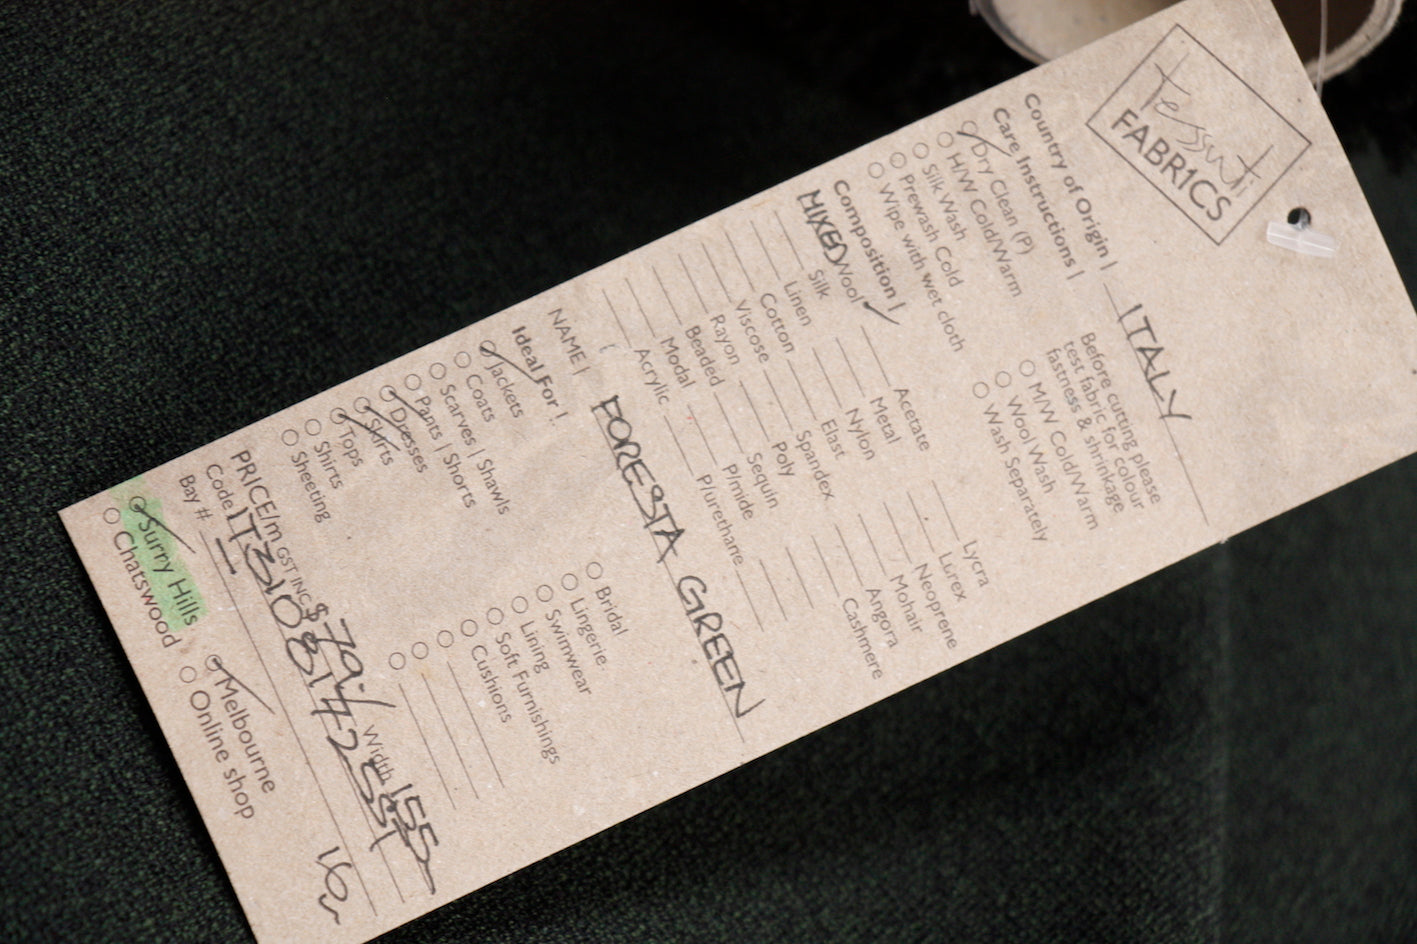 Tessuti
FABR1CS
Country of Origin | ITALY
Care Instructions |
Dry Clean (P)
H/W Cold/Warm
Silk Wash
Prewash Cold
Wipe with wet cloth
Before cutting please
test fabric for colour
fastness & shrinkage
M/W Cold/Warm
Wool Wash
Wash Separately
Composition |
MIXED Wool Acetate Lycra
Silk Metal Lurex
Linen Nylon Neoprene
Cotton Elast Mohair
Viscose Spandex Angora
Rayon Poly Cashmere
Beaded Sequin
Modal P/mide
Acrylic P/urethane
NAME | FORESTA GREEN
Ideal For |
Jackets Bridal
Coats Lingerie
Scarves | Shawls Swimwear
Pants | Shorts Lining
Dresses Soft Furnishings
Skirts Cushions
Tops
Shirts
Sheeting
PRICE/m GST INC $ 79.- Width 155
Code
Bay #
Surry Hills Melbourne
Chatswood Online shop